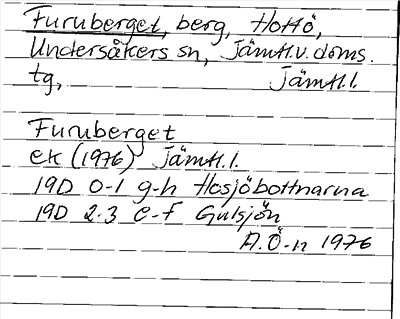 Furuberget, berg, Hottö,
Undersåkers sn, Jämtl.v. doms.
tg, Jämtl.l.
Furuberget
ek (1976) Jämtl.l.
19D 0-1 g-h Hosjöbottnarna
19D 2-3 e-f Gulsjön
A.Ö-n 1976